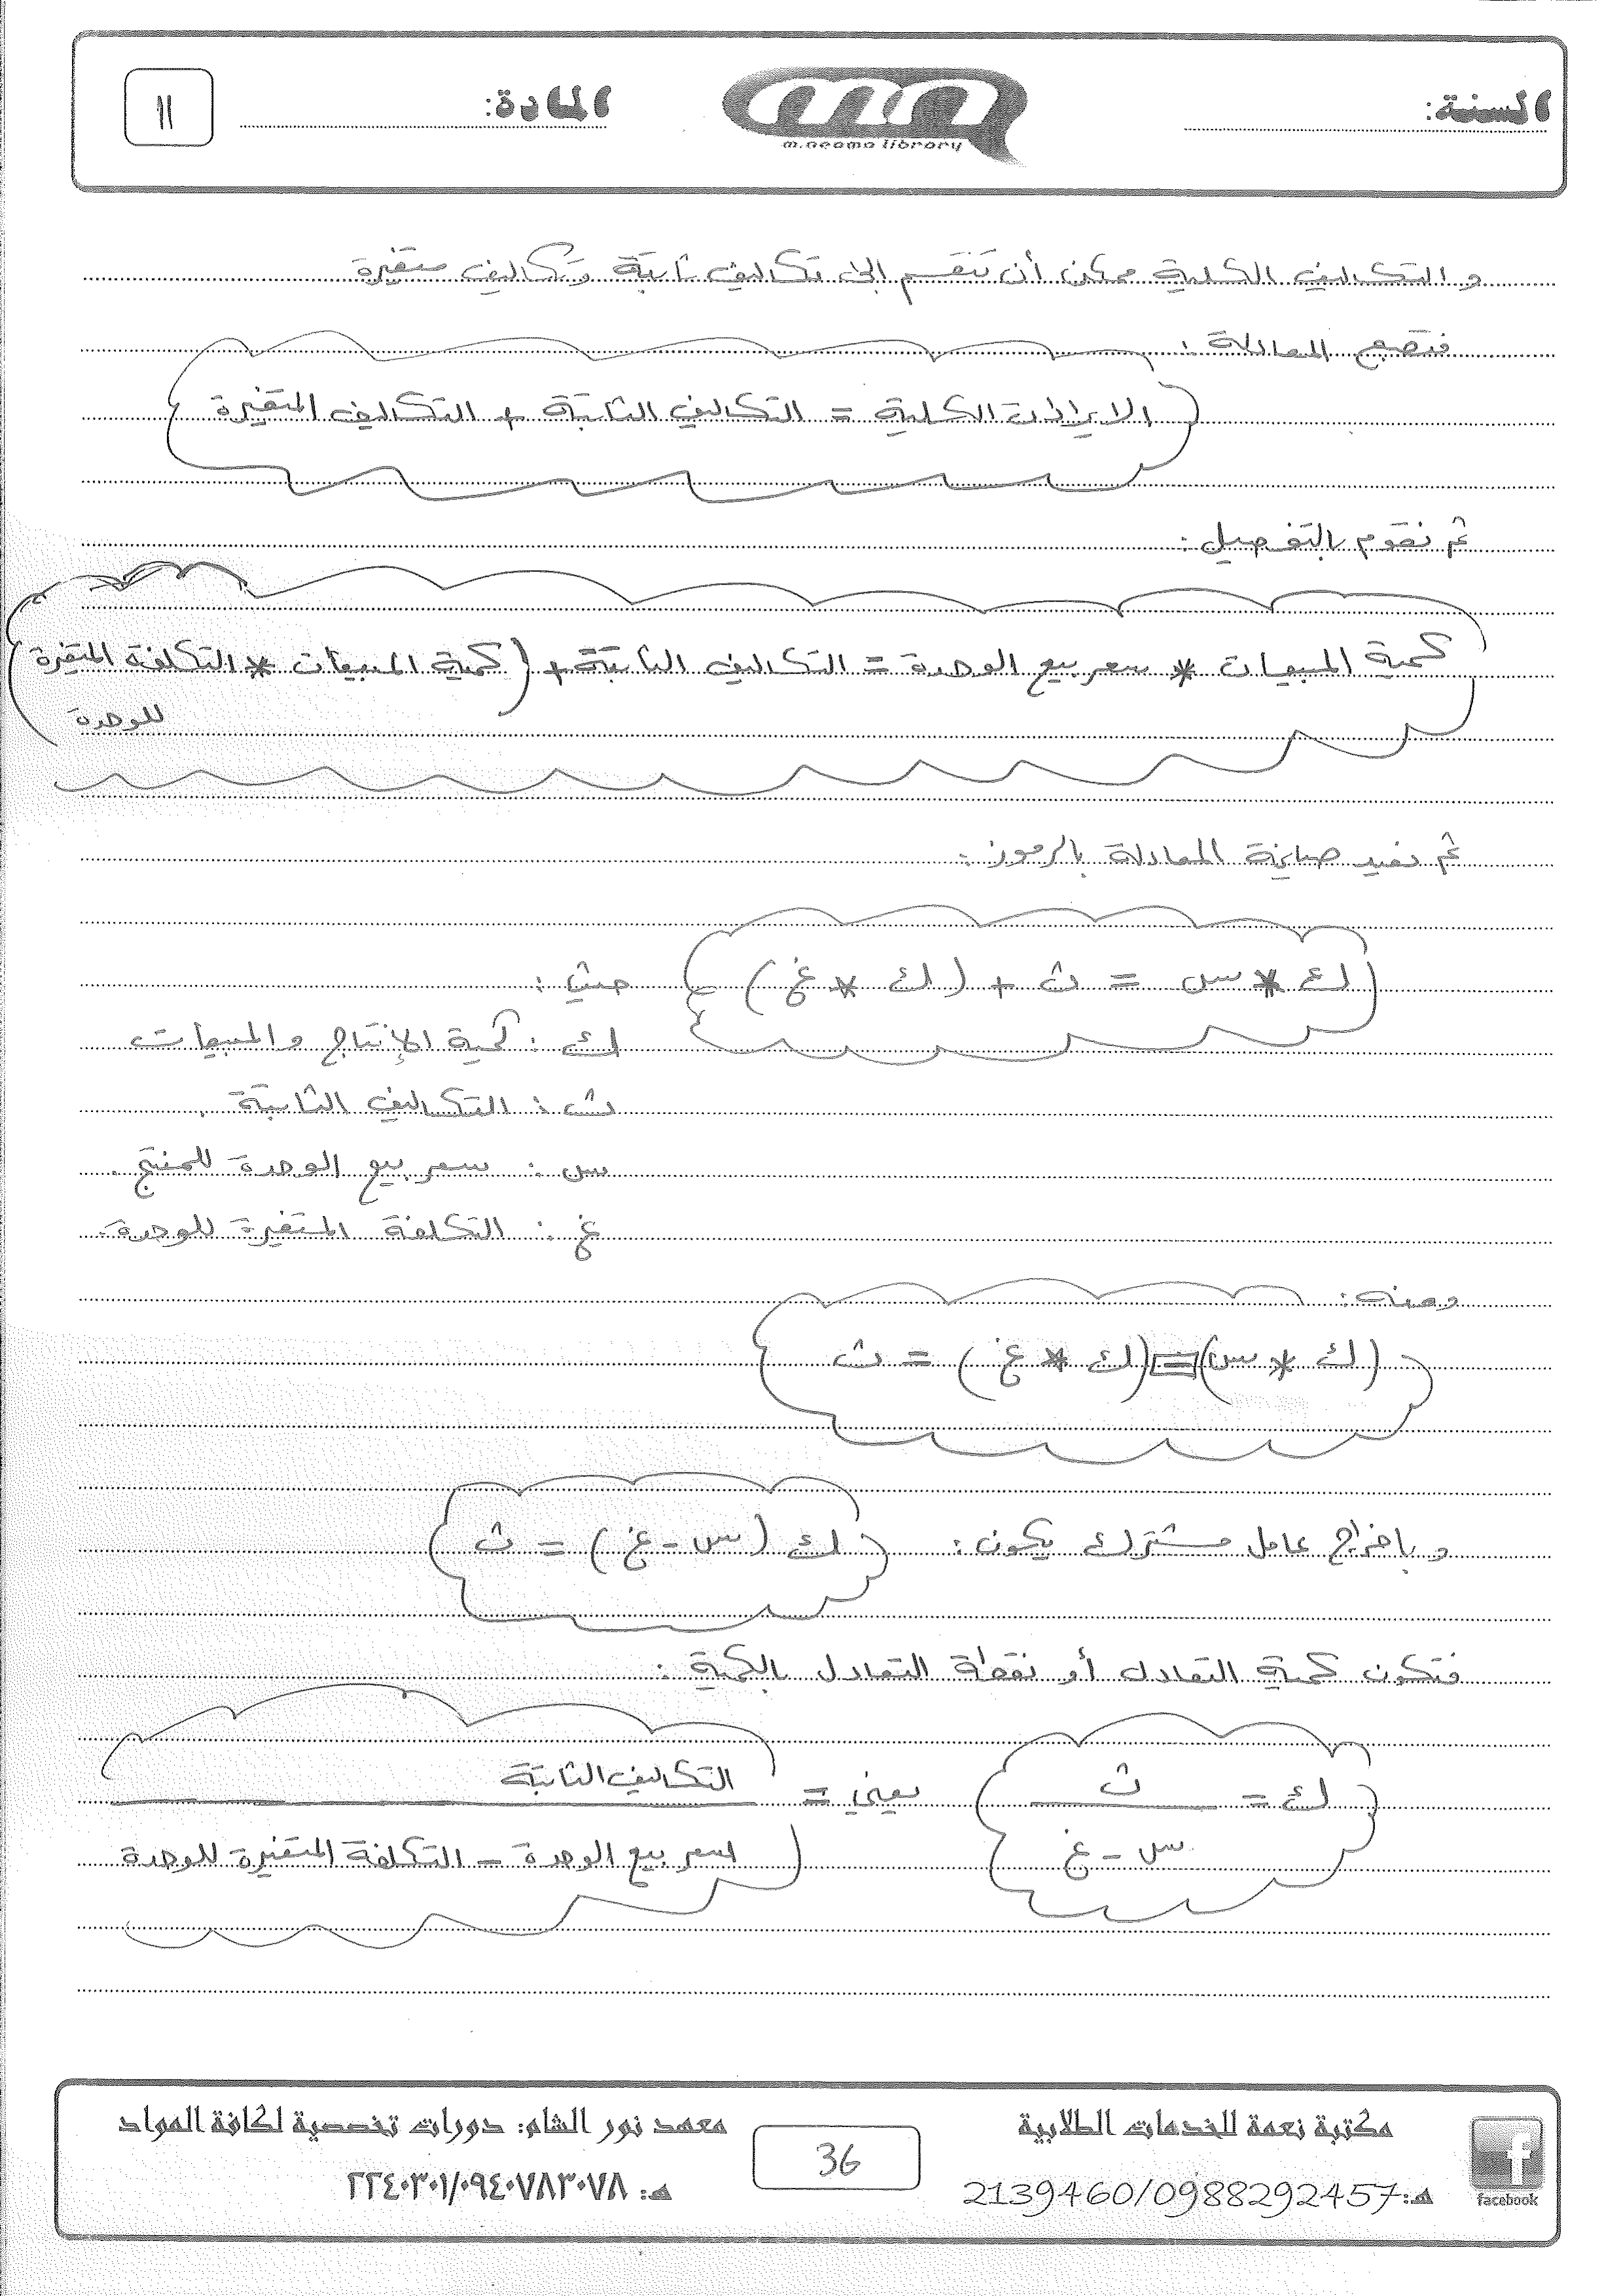 السنة:
m.neama library
المادة:
11
و التكاليف الكلية ممكن أن تنقسم إلى تكاليف ثابتة و تكاليف متغيرة
فتصبح المعادلة :
الايرادات الكلية = التكاليف الثابتة + التكاليف المتغيرة
ثم نقوم بالتفصيل :
كمية المبيعات * سعر بيع الوحدة = التكاليف الثابتة + (كمية المبيعات * التكلفة المتغيرة
للوحدة
ثم نعيد صياغة المعادلة بالرموز :
ك * س = ث + (ك * غ) حيث :
ك : كمية الإنتاج والمبيعات
ث : التكاليف الثابتة .
س : سعر بيع الوحدة للمنتج .
غ : التكلفة المتغيرة للوحدة .
ومنه :
(ك * س) = (ك * غ) = ث
و باخراج عامل مشترك يكون : ك (س - غ) = ث
فتكون كمية التعادل أو نقطة التعادل بالكمية :
ك = ث يعني = التكاليف الثابتة
س - غ سعر بيع الوحدة - التكلفة المتغيرة للوحدة
facebook
مكتبة نعمة للخدمات الطلابية
هـ: 2139460/0988292457
36
معهد نور الشام: دورات تخصصية لكافة المواد
هـ: ٢٢٤٠٣٠١/٠٩٤٠٧٨٣٠٧٨